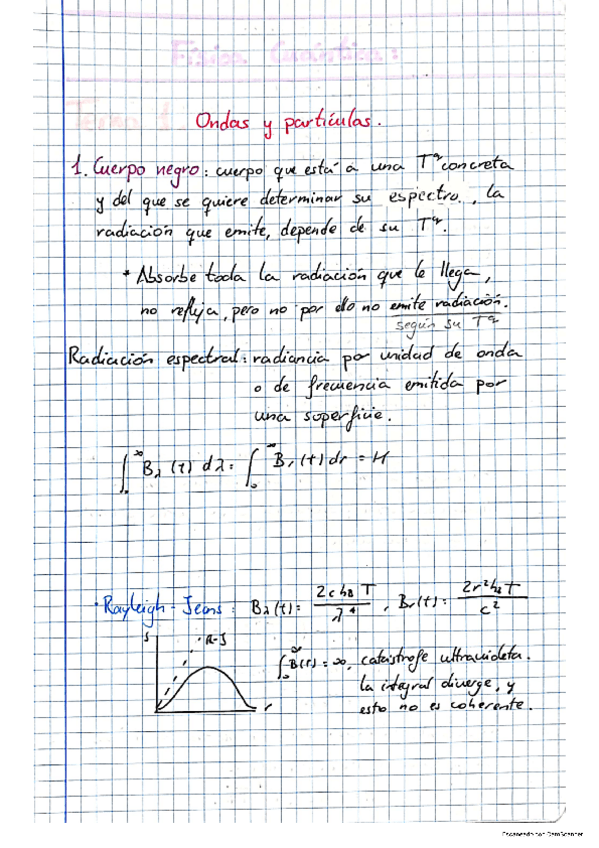 Física Cuántica:
Ondas y partículas.
1. Cuerpo negro: cuerpo que está a una Tª concreta
y del que se quiere determinar su espectro, la
radiación que emite, depende de su Tª.
* Absorbe toda la radiación que le llega,
no refleja, pero no por ello no emite radiación.
según su Tª
Radiación espectral: radiancia por unidad de onda
o de frecuencia emitida por
una superficie.
∫₀^∞ Bλ (t) dλ = ∫₀^∞ Br (t) dr = H
· Rayleigh - Jeans: Bλ(t) = 2ckB T / λ⁴ , Br(t) = 2r²kB T / c²
S
· R-J
r
∫₀^∞ B(r) = ∞, catástrofe ultravioleta.
la integral diverge, y
esto no es coherente.
Escaneado con CamScanner